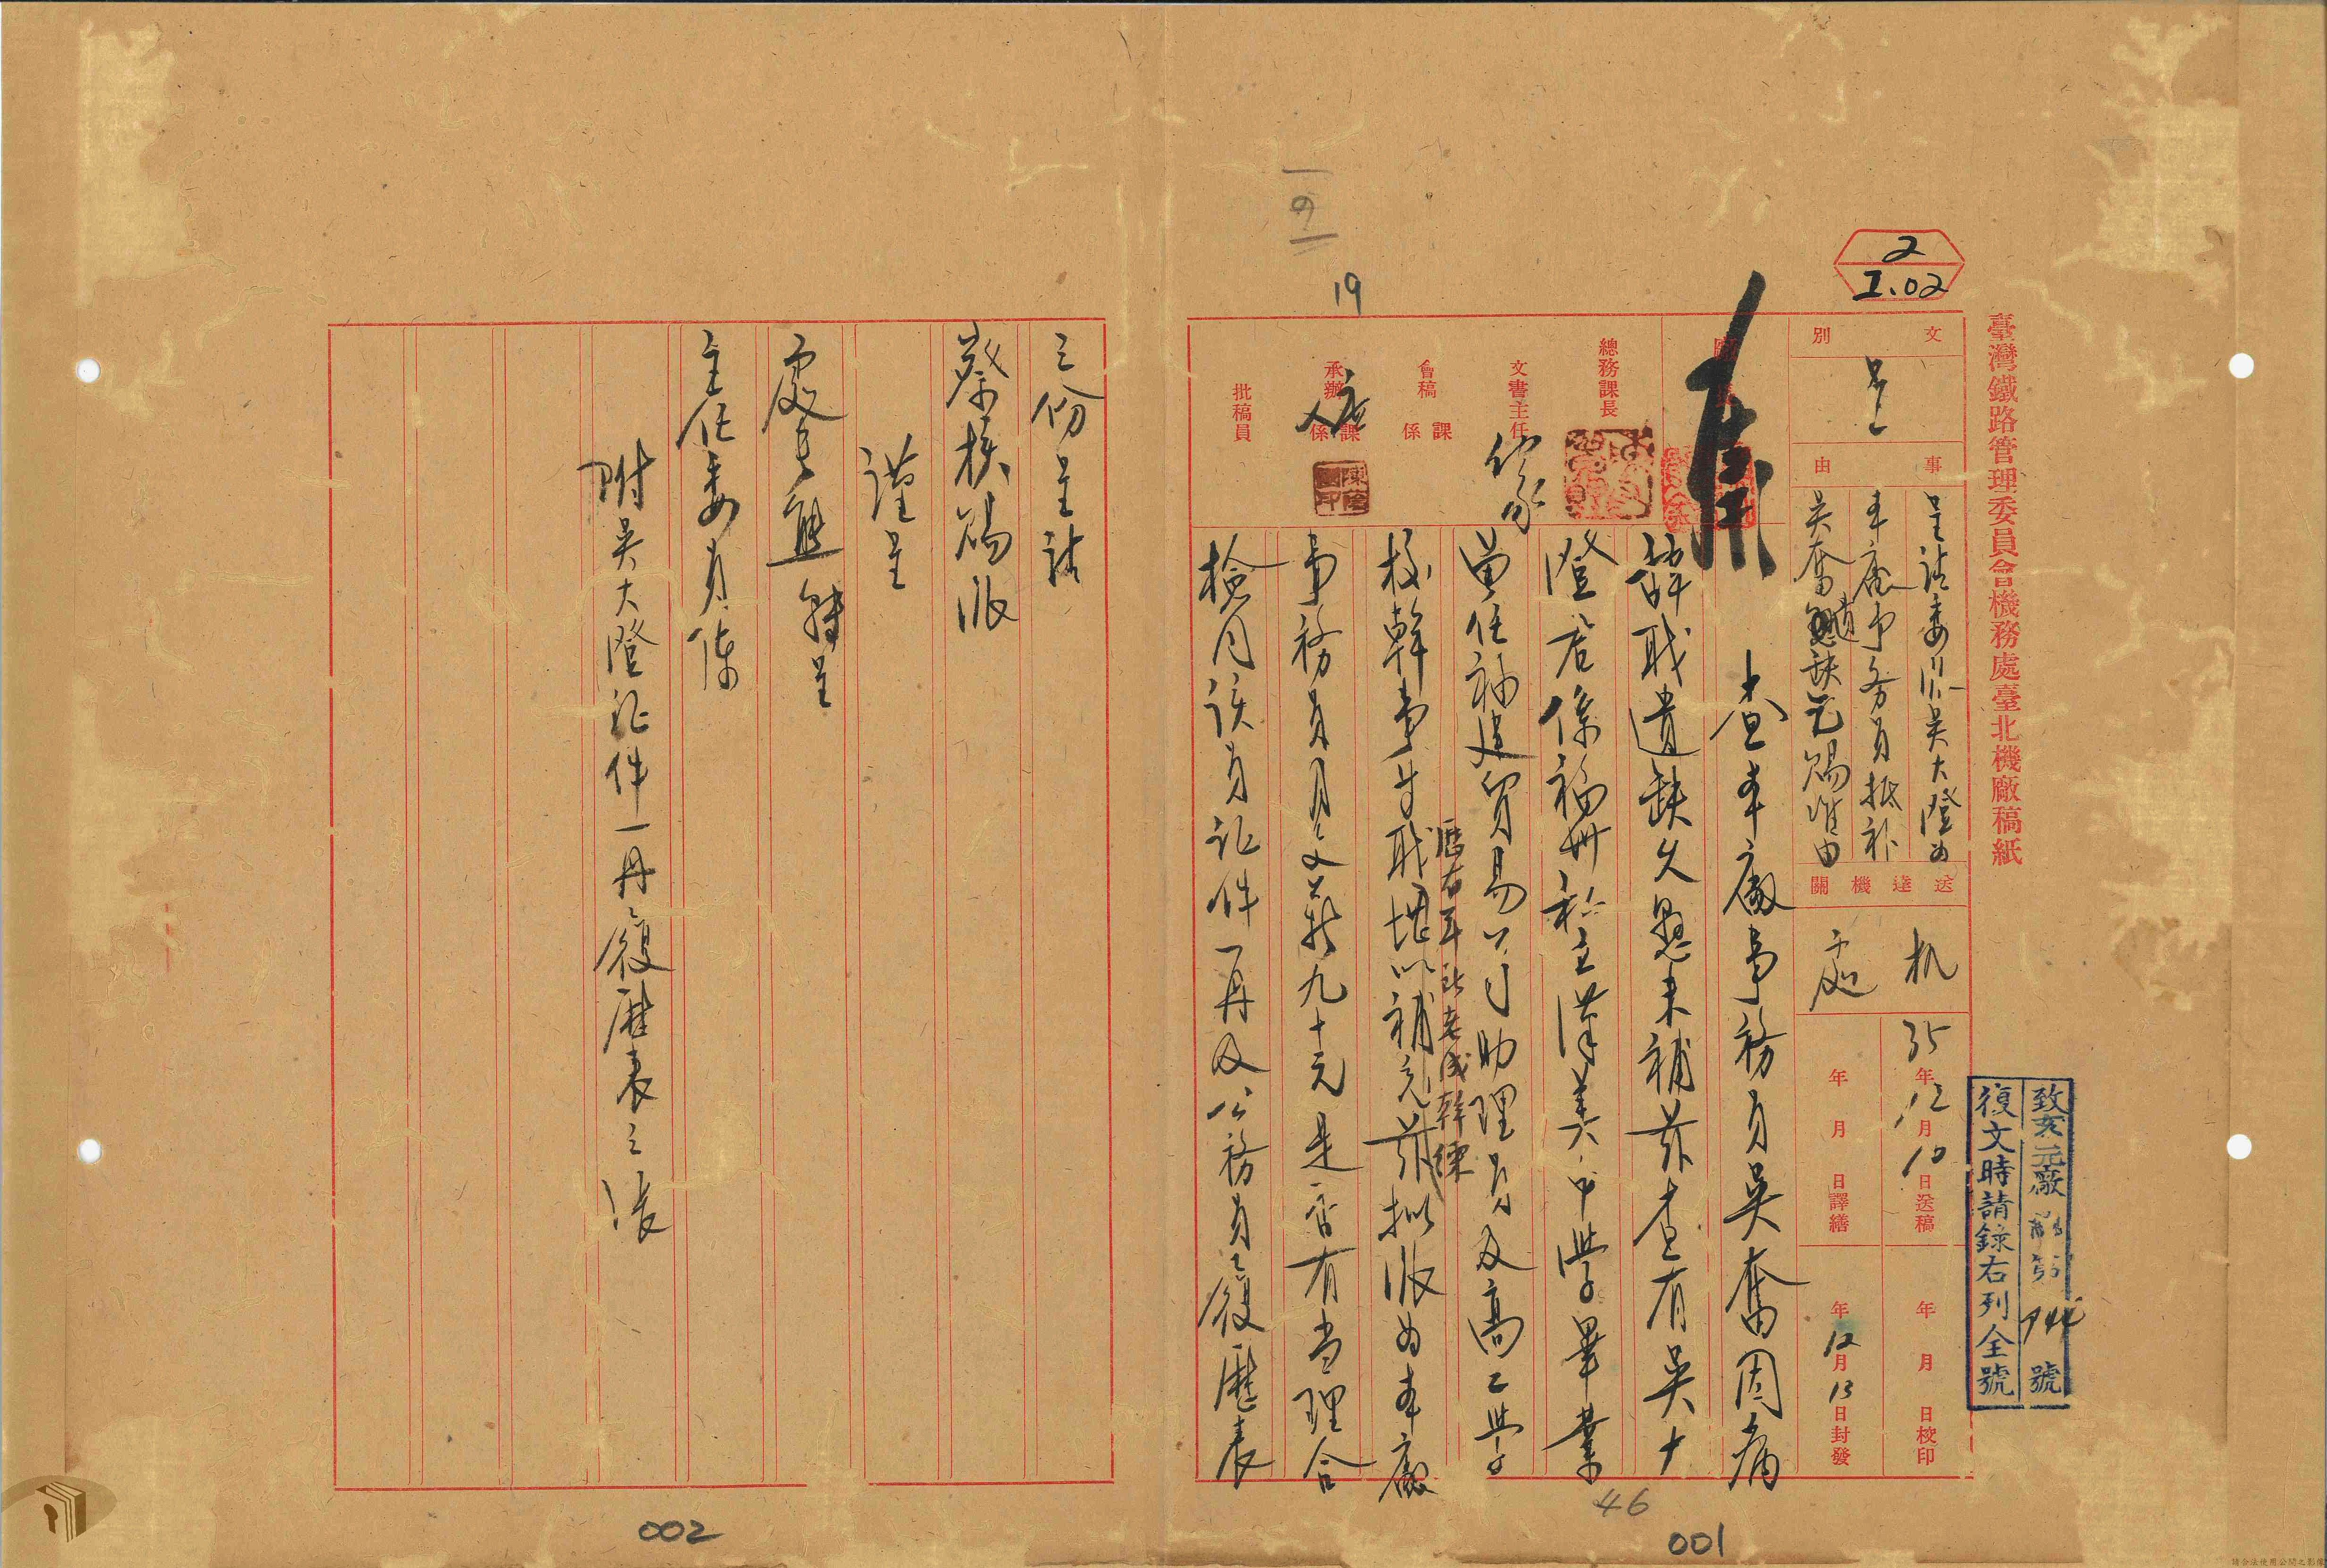 臺灣鐵路管理委員會機務處臺北機廠稿紙
致亥元廠 第 944 號
復文時請錄右列全號
2
I.02
文別
呈
事由
呈請委派吳大澄為
本廠事务員抵补
吳奮遺缺乞賜准由
送達機關
机處
35年12月10日送稿
年月日譯繕
年月日校印
年12月13日封發
總務課長
文書主任
會稿 課係
承辦 課係
批稿員
19
查本廠事務員吳奮因病
辞职遺缺久懸未補茲查有吳大
澄君係福州私立漢美中學畢業
曾任福建貿易公司助理員及高工學
校幹事等职
歷有年所老成幹練
堪以補充茲拟派为本廠
事務員月支薪九十元是否有当理合
檢同该員证件一冊及公務員履歷表
46
001
三份呈請
察核賜派
謹呈
處長熊 轉呈
主任委員陳
附吳大澄证件一冊履歷表三張
002